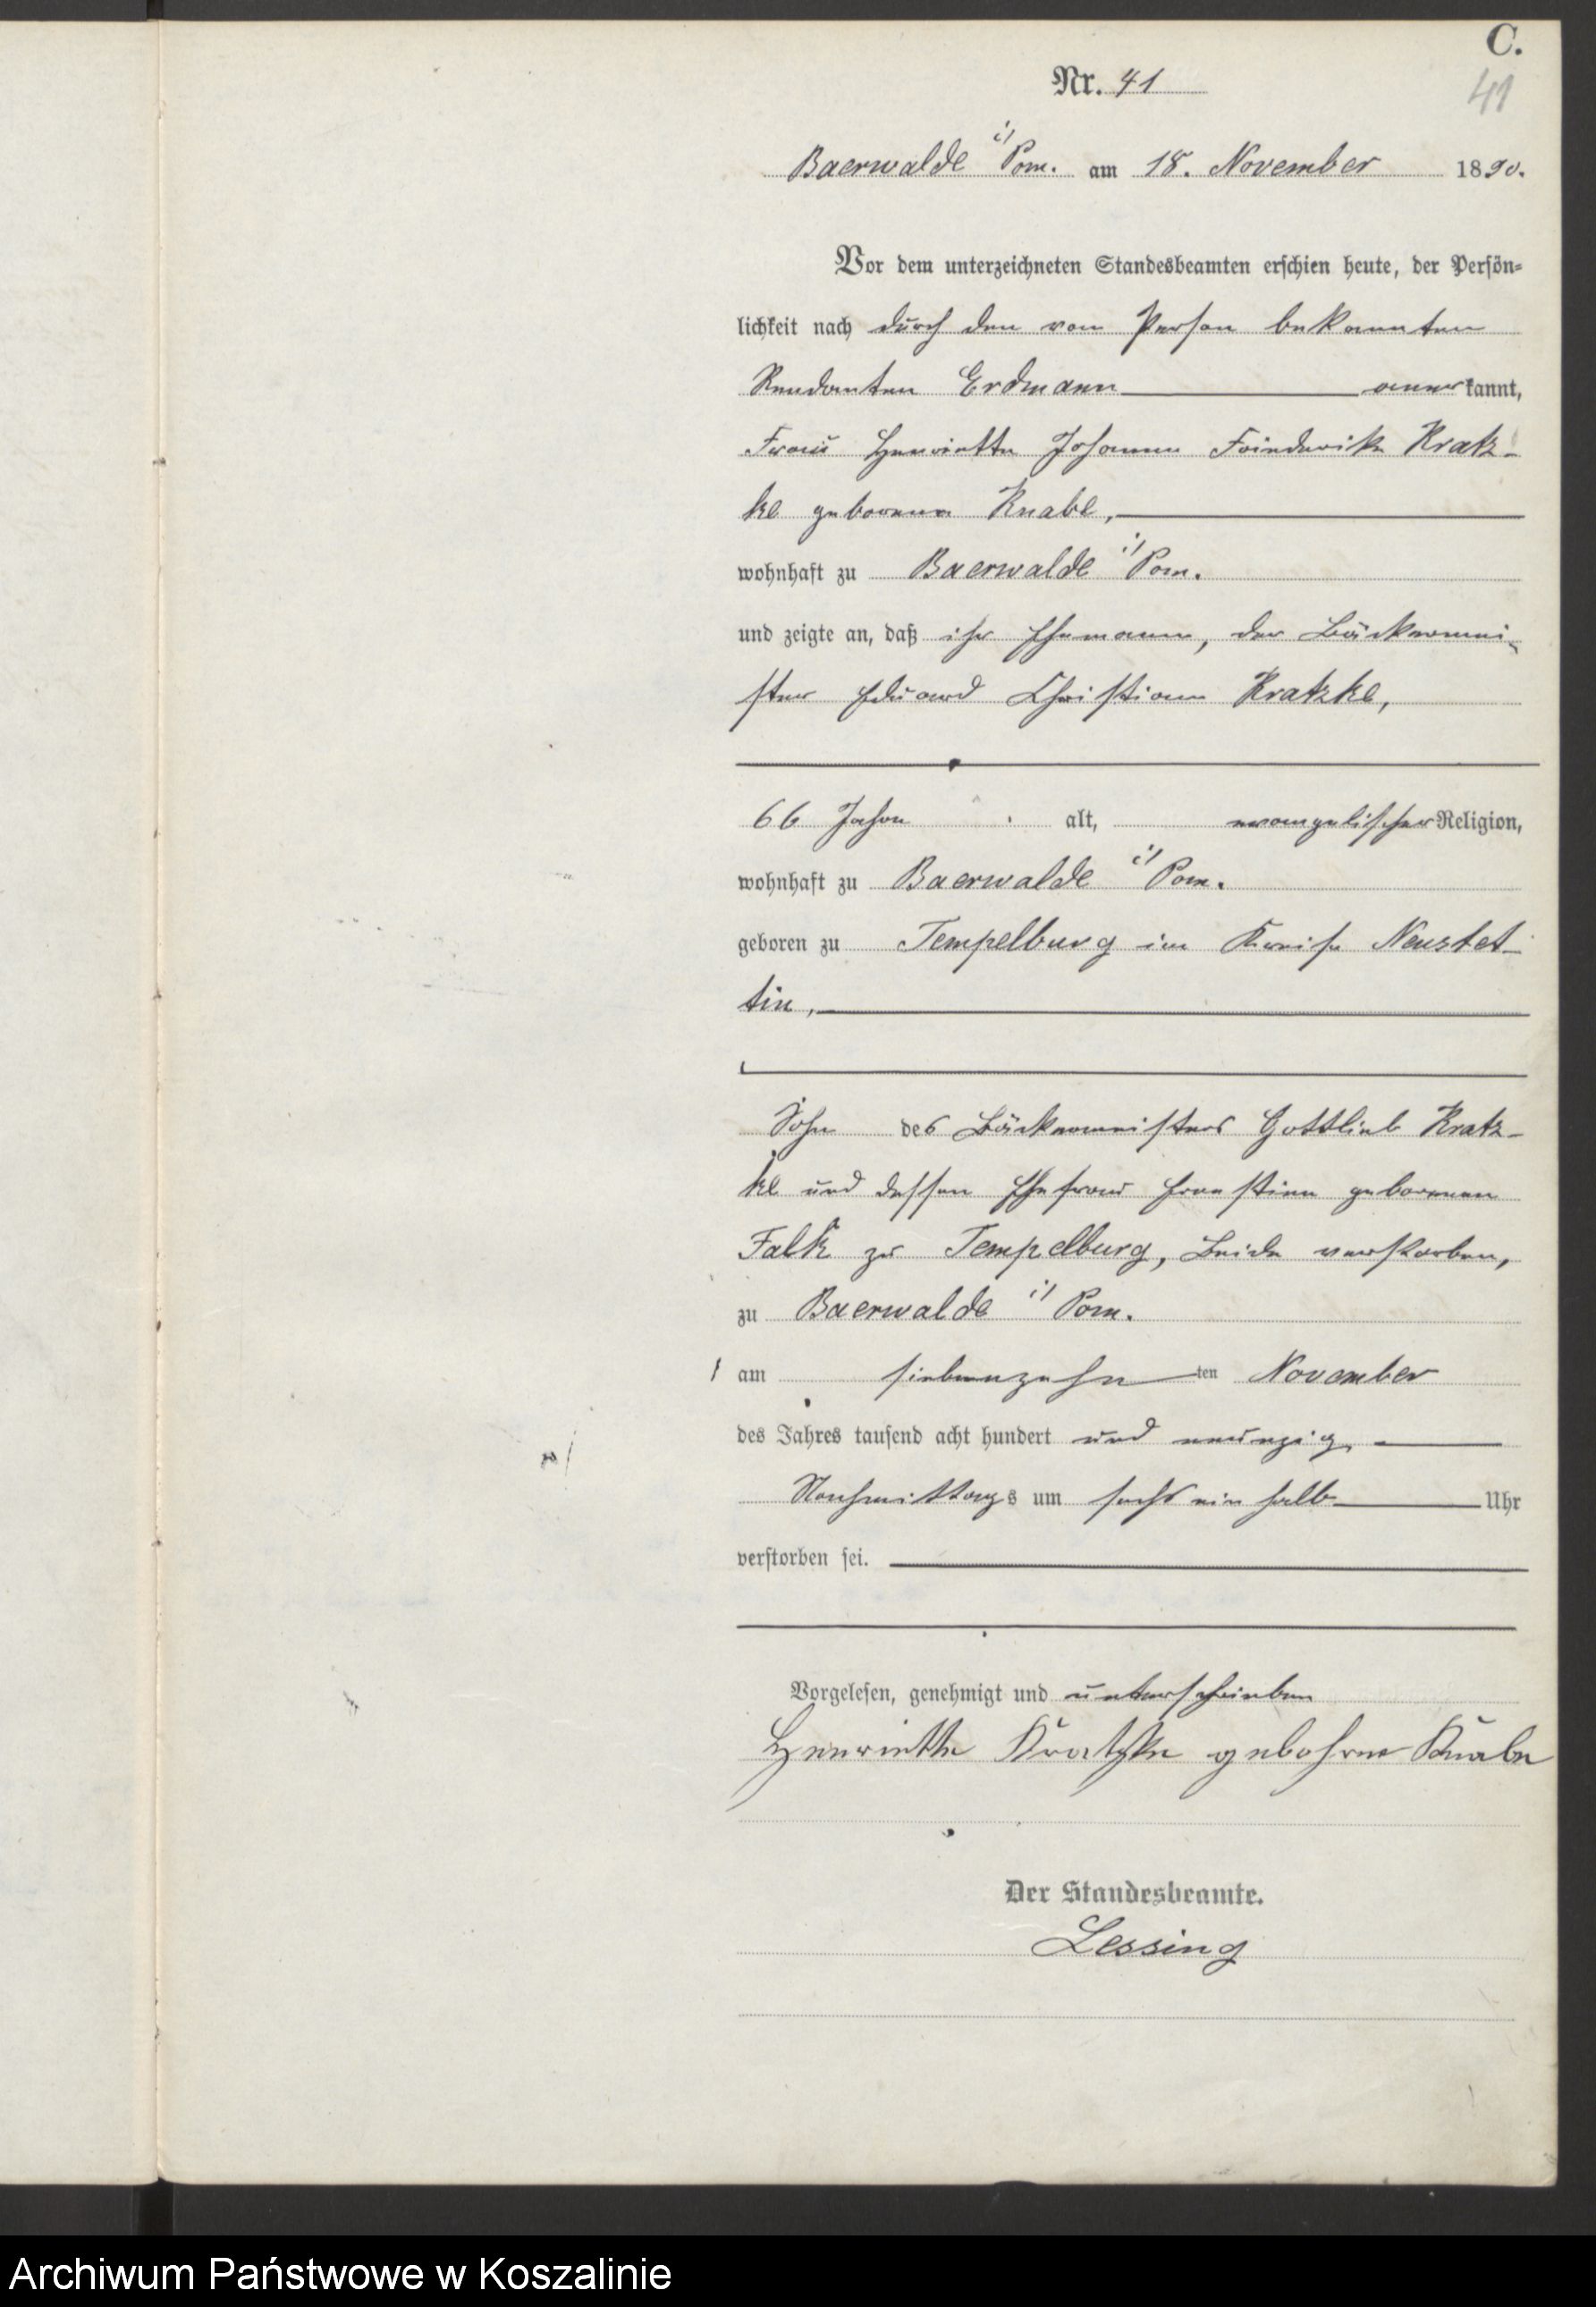 C.
Nr. 41
41
Baerwalde i/Pom. am 18. November 1890.
Vor dem unterzeichneten Standesbeamten erschien heute, der Persön-
lichkeit nach durch den von Person bekannten
Rendanten Erdmann anerkannt,
Frau Henriette Johanne Friederike Kratz-
ke geborene Knabe,
wohnhaft zu Baerwalde i/Pom.
und zeigte an, daß ihr Ehemann, der Bäckermei-
ster Eduard Christian Kratzke,
66 Jahre alt, evangelischer Religion,
wohnhaft zu Baerwalde i/Pom.
geboren zu Tempelburg im Kreise Neustet-
tin,
Sohn des Bäckermeisters Gottlieb Kratz-
ke und dessen Ehefrau Ernstine geborenen
Falk zu Tempelburg, Beide verstorben,
zu Baerwalde i/Pom.
am siebenzehnten November
des Jahres tausend acht hundert und neunzig
Nachmittags um sechs ein halb Uhr
verstorben sei.
Vorgelesen, genehmigt und unterschrieben
Henriette Kratzke gebohrne Knabe
Der Standesbeamte.
Lessing
Archiwum Państwowe w Koszalinie